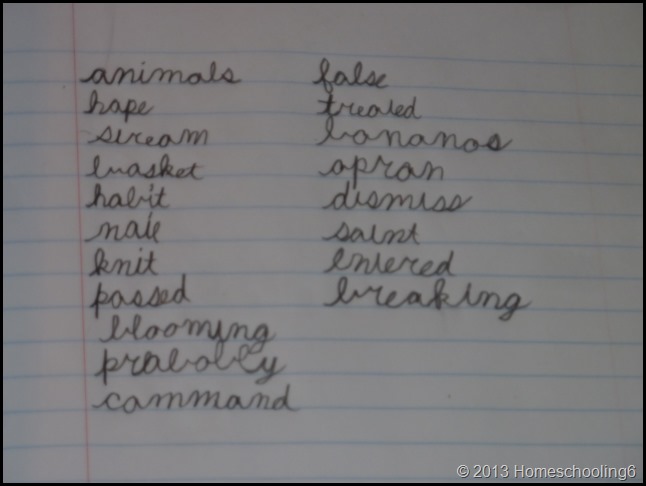 animals
hope
scream
basket
habit
nail
knit
passed
blooming
probably
command
false
treated
bananas
apron
dismiss
saint
entered
breaking
© 2013 Homeschooling6